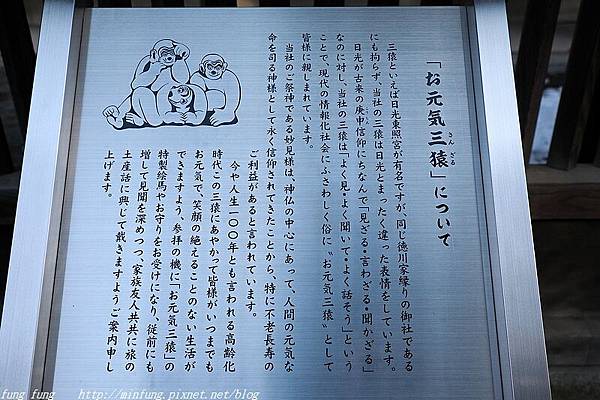 「お元気三猿」について
さん ざる
三猿といえば日光東照宮が有名ですが、同じ徳川家縁りの御社である
にも拘らず、当社の三猿は日光とまったく違った表情をしています。
日光が古来の庚申信仰にちなんで「見ざる・言わざる・聞かざる」
なのに対し、当社の三猿は「よく見・よく聞いて・よく話そう」という
ことで、現代の情報化社会にふさわしく俗に〝お元気三猿〟として
皆様に親しまれています。
当社のご祭神である妙見様は、神仏の中心にあって、人間の元気な
命を司る神様として永く信仰されてきたことから、特に不老長寿の
ご利益があると言われています。
今や人生一〇〇年とも言われる高齢化
時代この三猿にあやかって皆様がいつまでも
お元気で、笑顔の絶えることのない生活が
できますよう、参拝の機に「お元気三猿」の
特製絵馬やお守りをお受けになり、従前にも
増して見聞を深めつつ、家族友人共共に旅の
土産話に興じて戴きますようご案内申し
上げます。
fung fung http://minfung.pixnet.net/blog